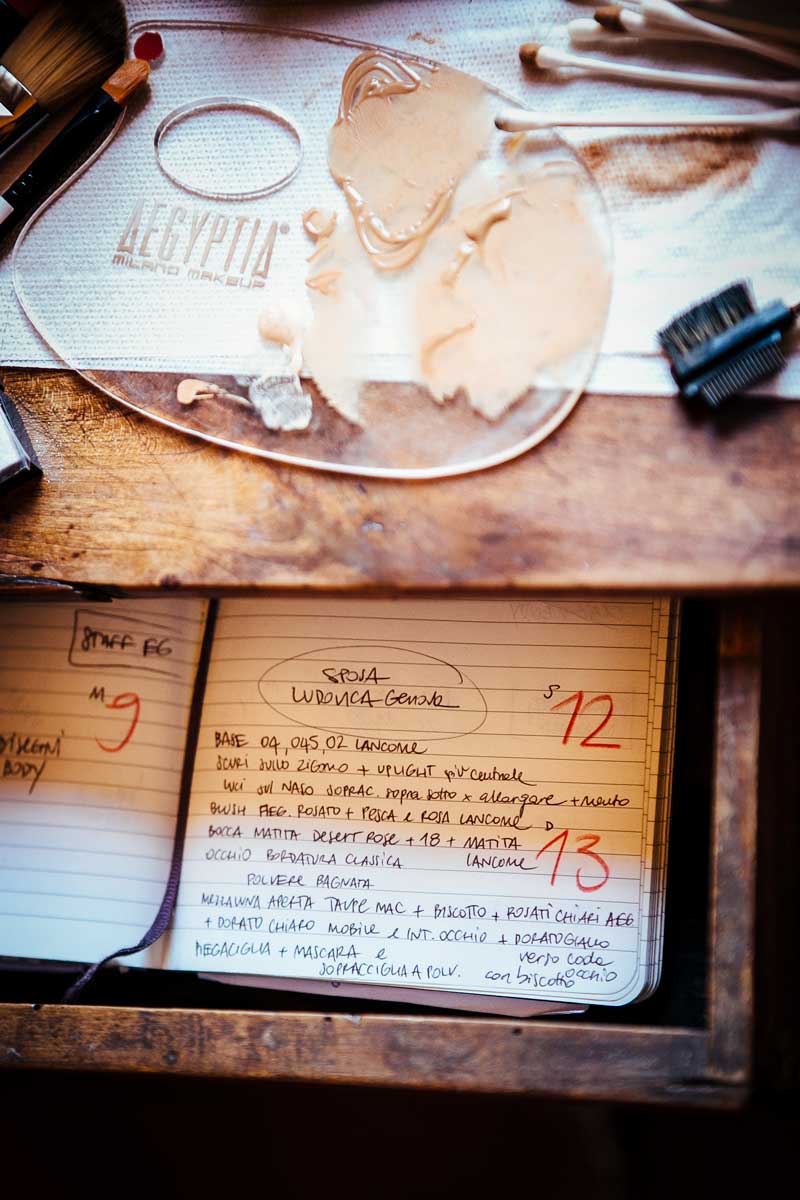 AEGYPTIA®
MILANO MAKEUP
STAFF EG
M 9
DISEGNI
BODY
SPOSA
LUDOVICA Genova
S 12
BASE 04, 045, 02 LANCOME
SCURI SULLO ZIGOMO + UPLIGHT più centrale
LUCI SUL NASO SOPRAC. sopra sotto x allargare + mento
BLUSH AEG. ROSATO + PESCA e ROSA LANCOME
D 13
BOCCA MATITA DESERT ROSE + 18 + MATITA
LANCOME
OCCHIO BORDATURA CLASSICA
POLVERE BAGNATA
MEZZALUNA APERTA TAUPE MAC + BISCOTTO + ROSATI CHIARI AEG
+ DORATO CHIARO MOBILE e INT. OCCHIO + DORATO GIALLO
verso coda
occhio
PIEGACIGLIA + MASCARA e
SOPRACCIGLIA A POLV. con biscotto